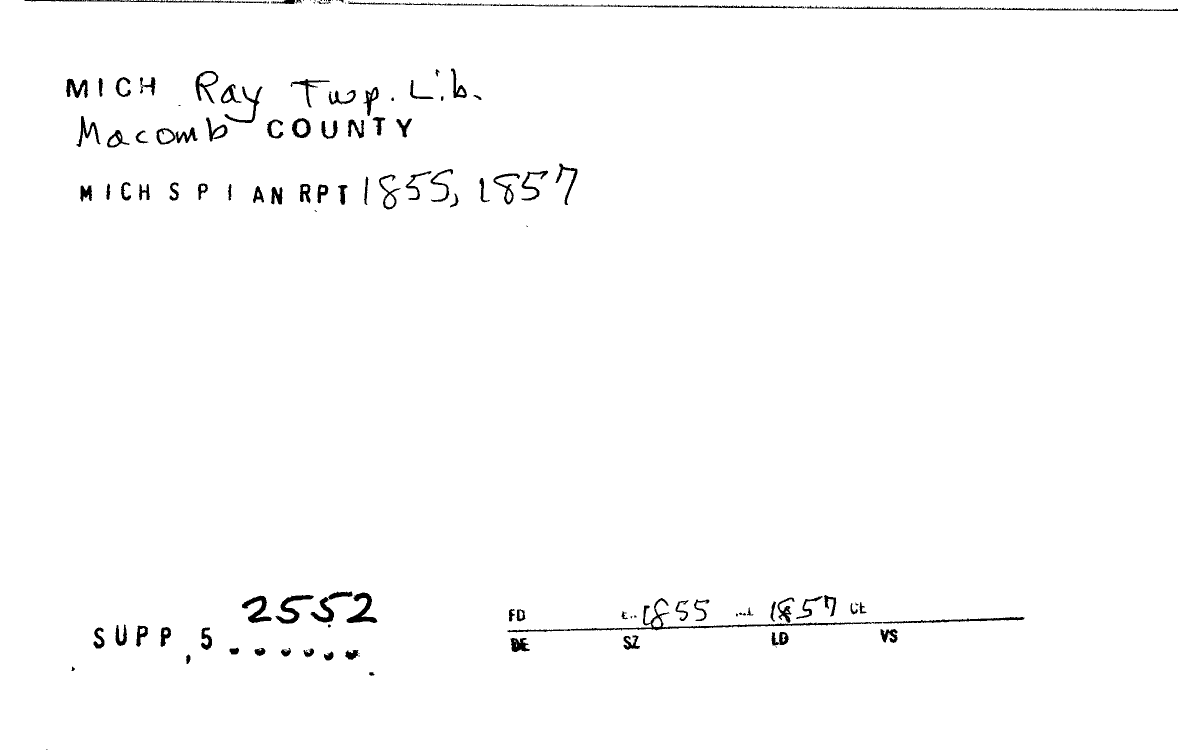 MICH Ray Twp. Lib.
Macomb COUNTY
MICH S P I AN RPT 1855, 1857
2552
SUPP, 5 ......
FD 1855 1857 CE
DE SZ LD VS